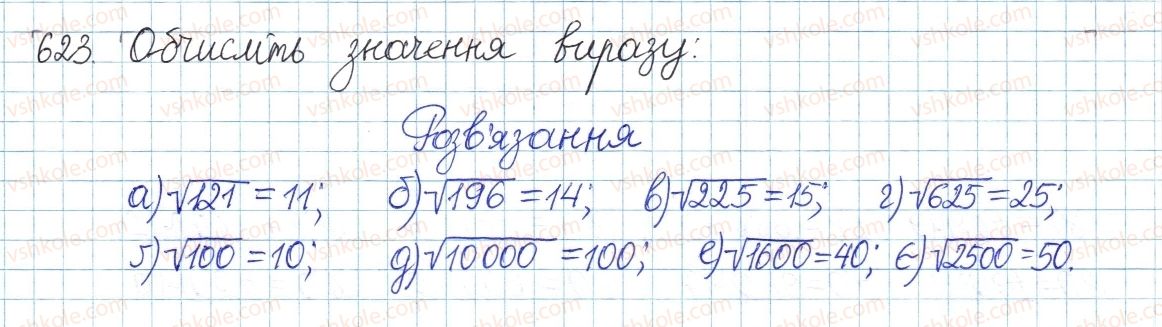 623. Обчисліть значення виразу:
Розв'язання
а) √121 = 11; б) √196 = 14; в) √225 = 15; г) √625 = 25;
ґ) √100 = 10; д) √10000 = 100; е) √1600 = 40; є) √2500 = 50.